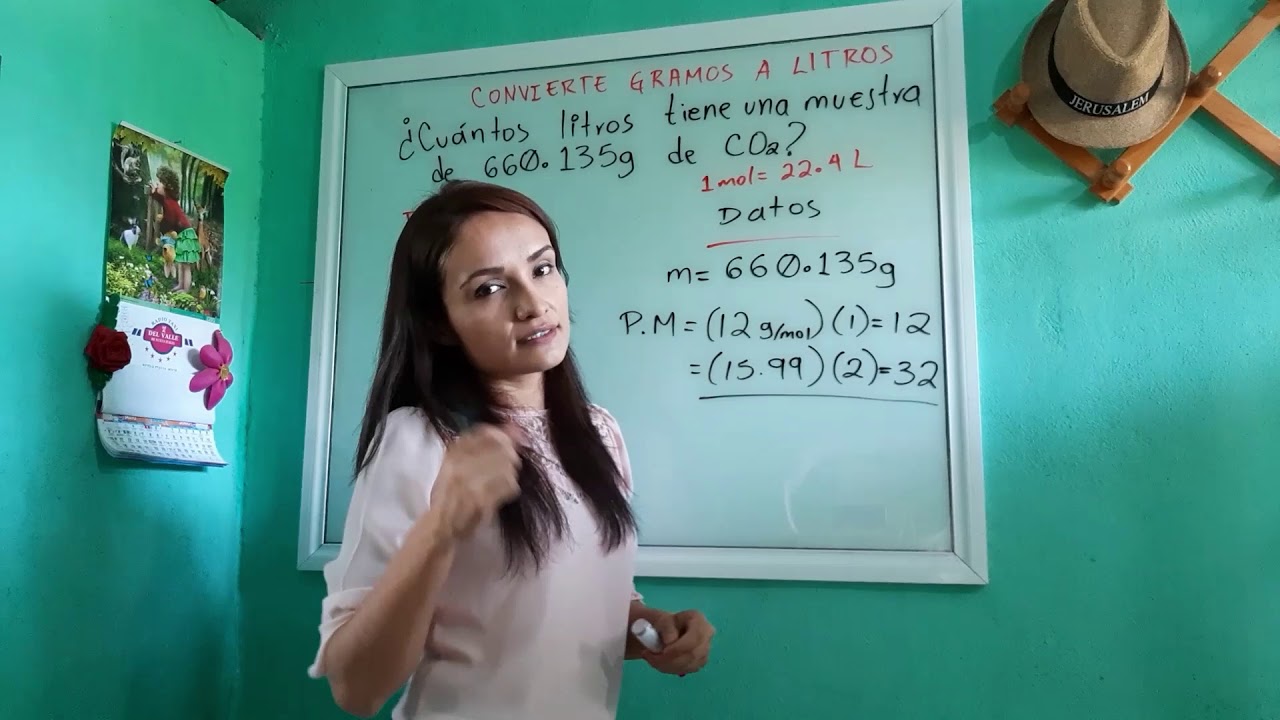 CONVIERTE GRAMOS A LITROS
¿Cuántos litros tiene una muestra
de 660.135g de CO2?
1mol= 22.4 L
Datos
m= 660.135g
P.M = (12 g/mol) (1)= 12
= (15.99) (2)= 32
JERUSALEM
DEL VALLE